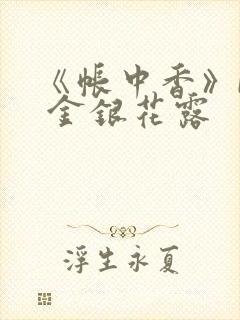 《帳中香》
金銀花露
浮生永夏